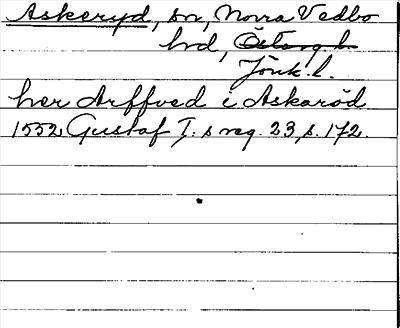 Askeryd, sn, Norra Vedbo
hd, Österg. l.
Jönk. l.
her Arffved i Askaröd
1552 Gustaf I. s reg. 23, s. 172.